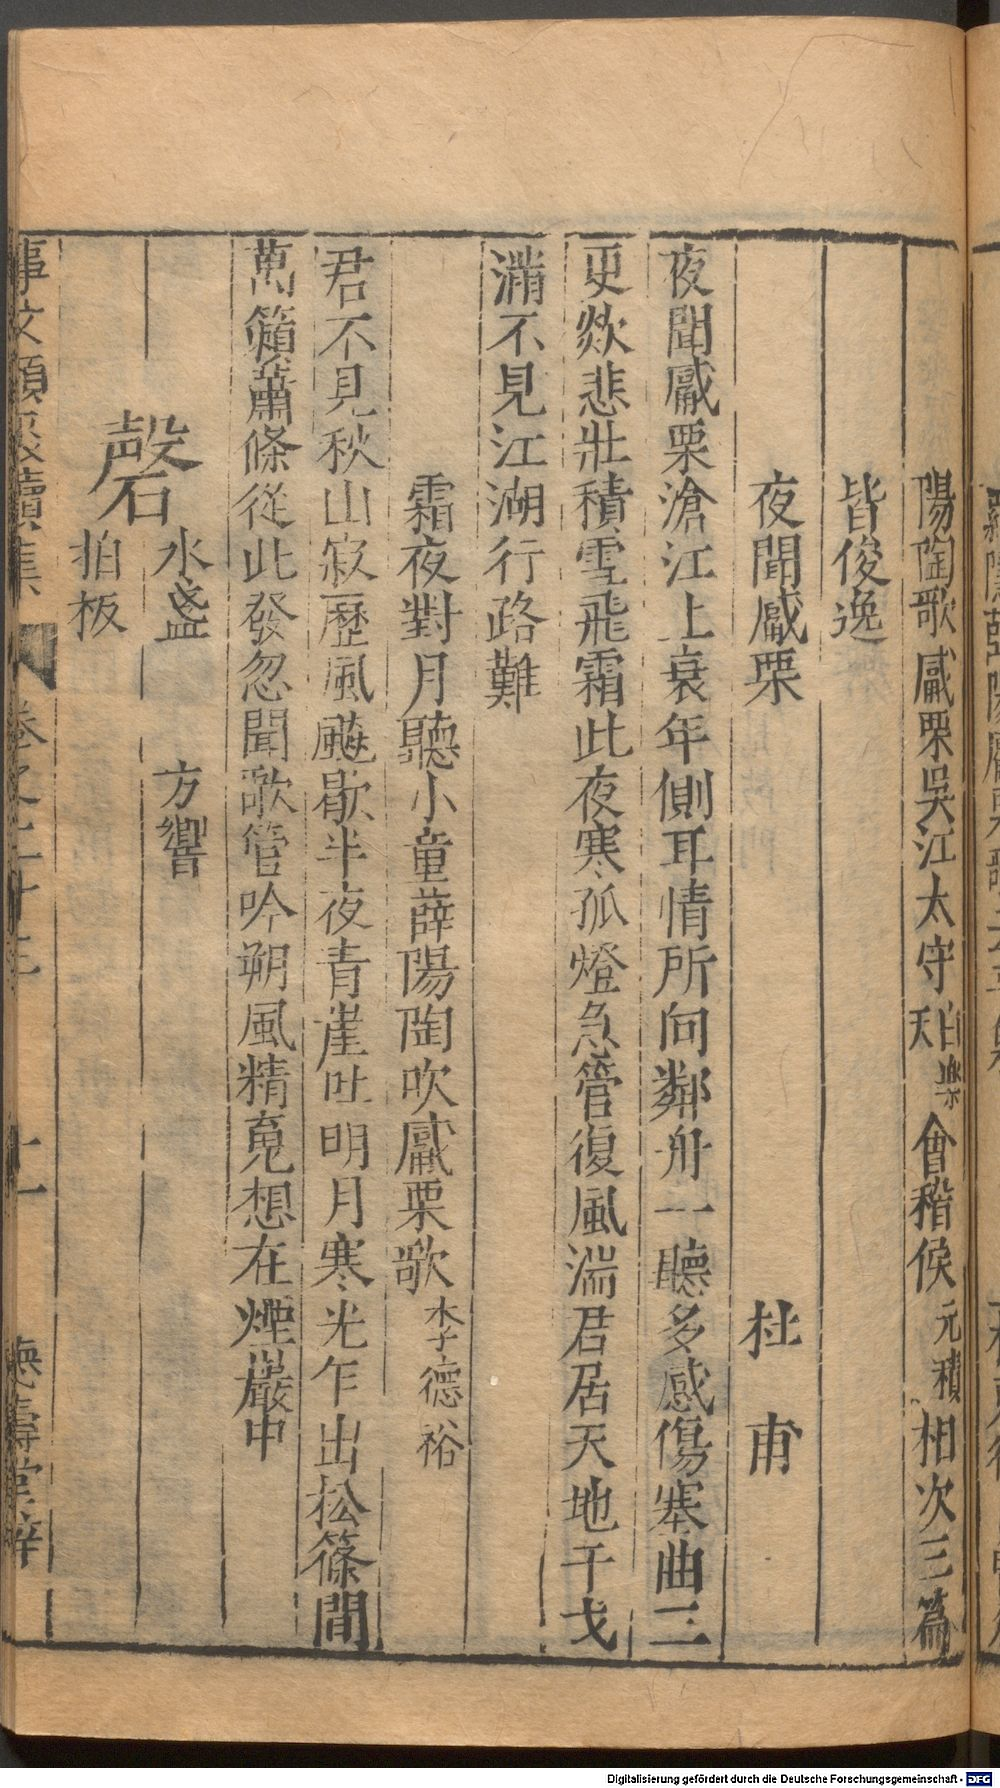 陽陶歌觱栗吳江太守白樂天會稽侯元積相次三篇
皆俊逸
夜聞觱栗 杜甫
夜聞觱栗滄江上衰年側耳情所向鄰舟一聽多感傷塞曲三
更欻悲壯積雪飛霜此夜寒孤燈急管復風湍君居天地干戈
滿不見江湖行路難
霜夜對月聽小童薛陽陶吹觱栗歌 李德裕
君不見秋山寂歷風飈歇半夜青崖吐明月寒光乍出松篠間
萬籟蕭條從此發忽聞歌管吟朔風精䰟想在煙巖中
磬 水盞 方響
拍板
事文類聚續集 卷之二十三 十一 德壽堂梓
Digitalisierung gefördert durch die Deutsche Forschungsgemeinschaft - DFG